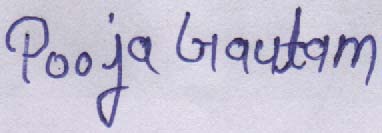 Pooja Gautam